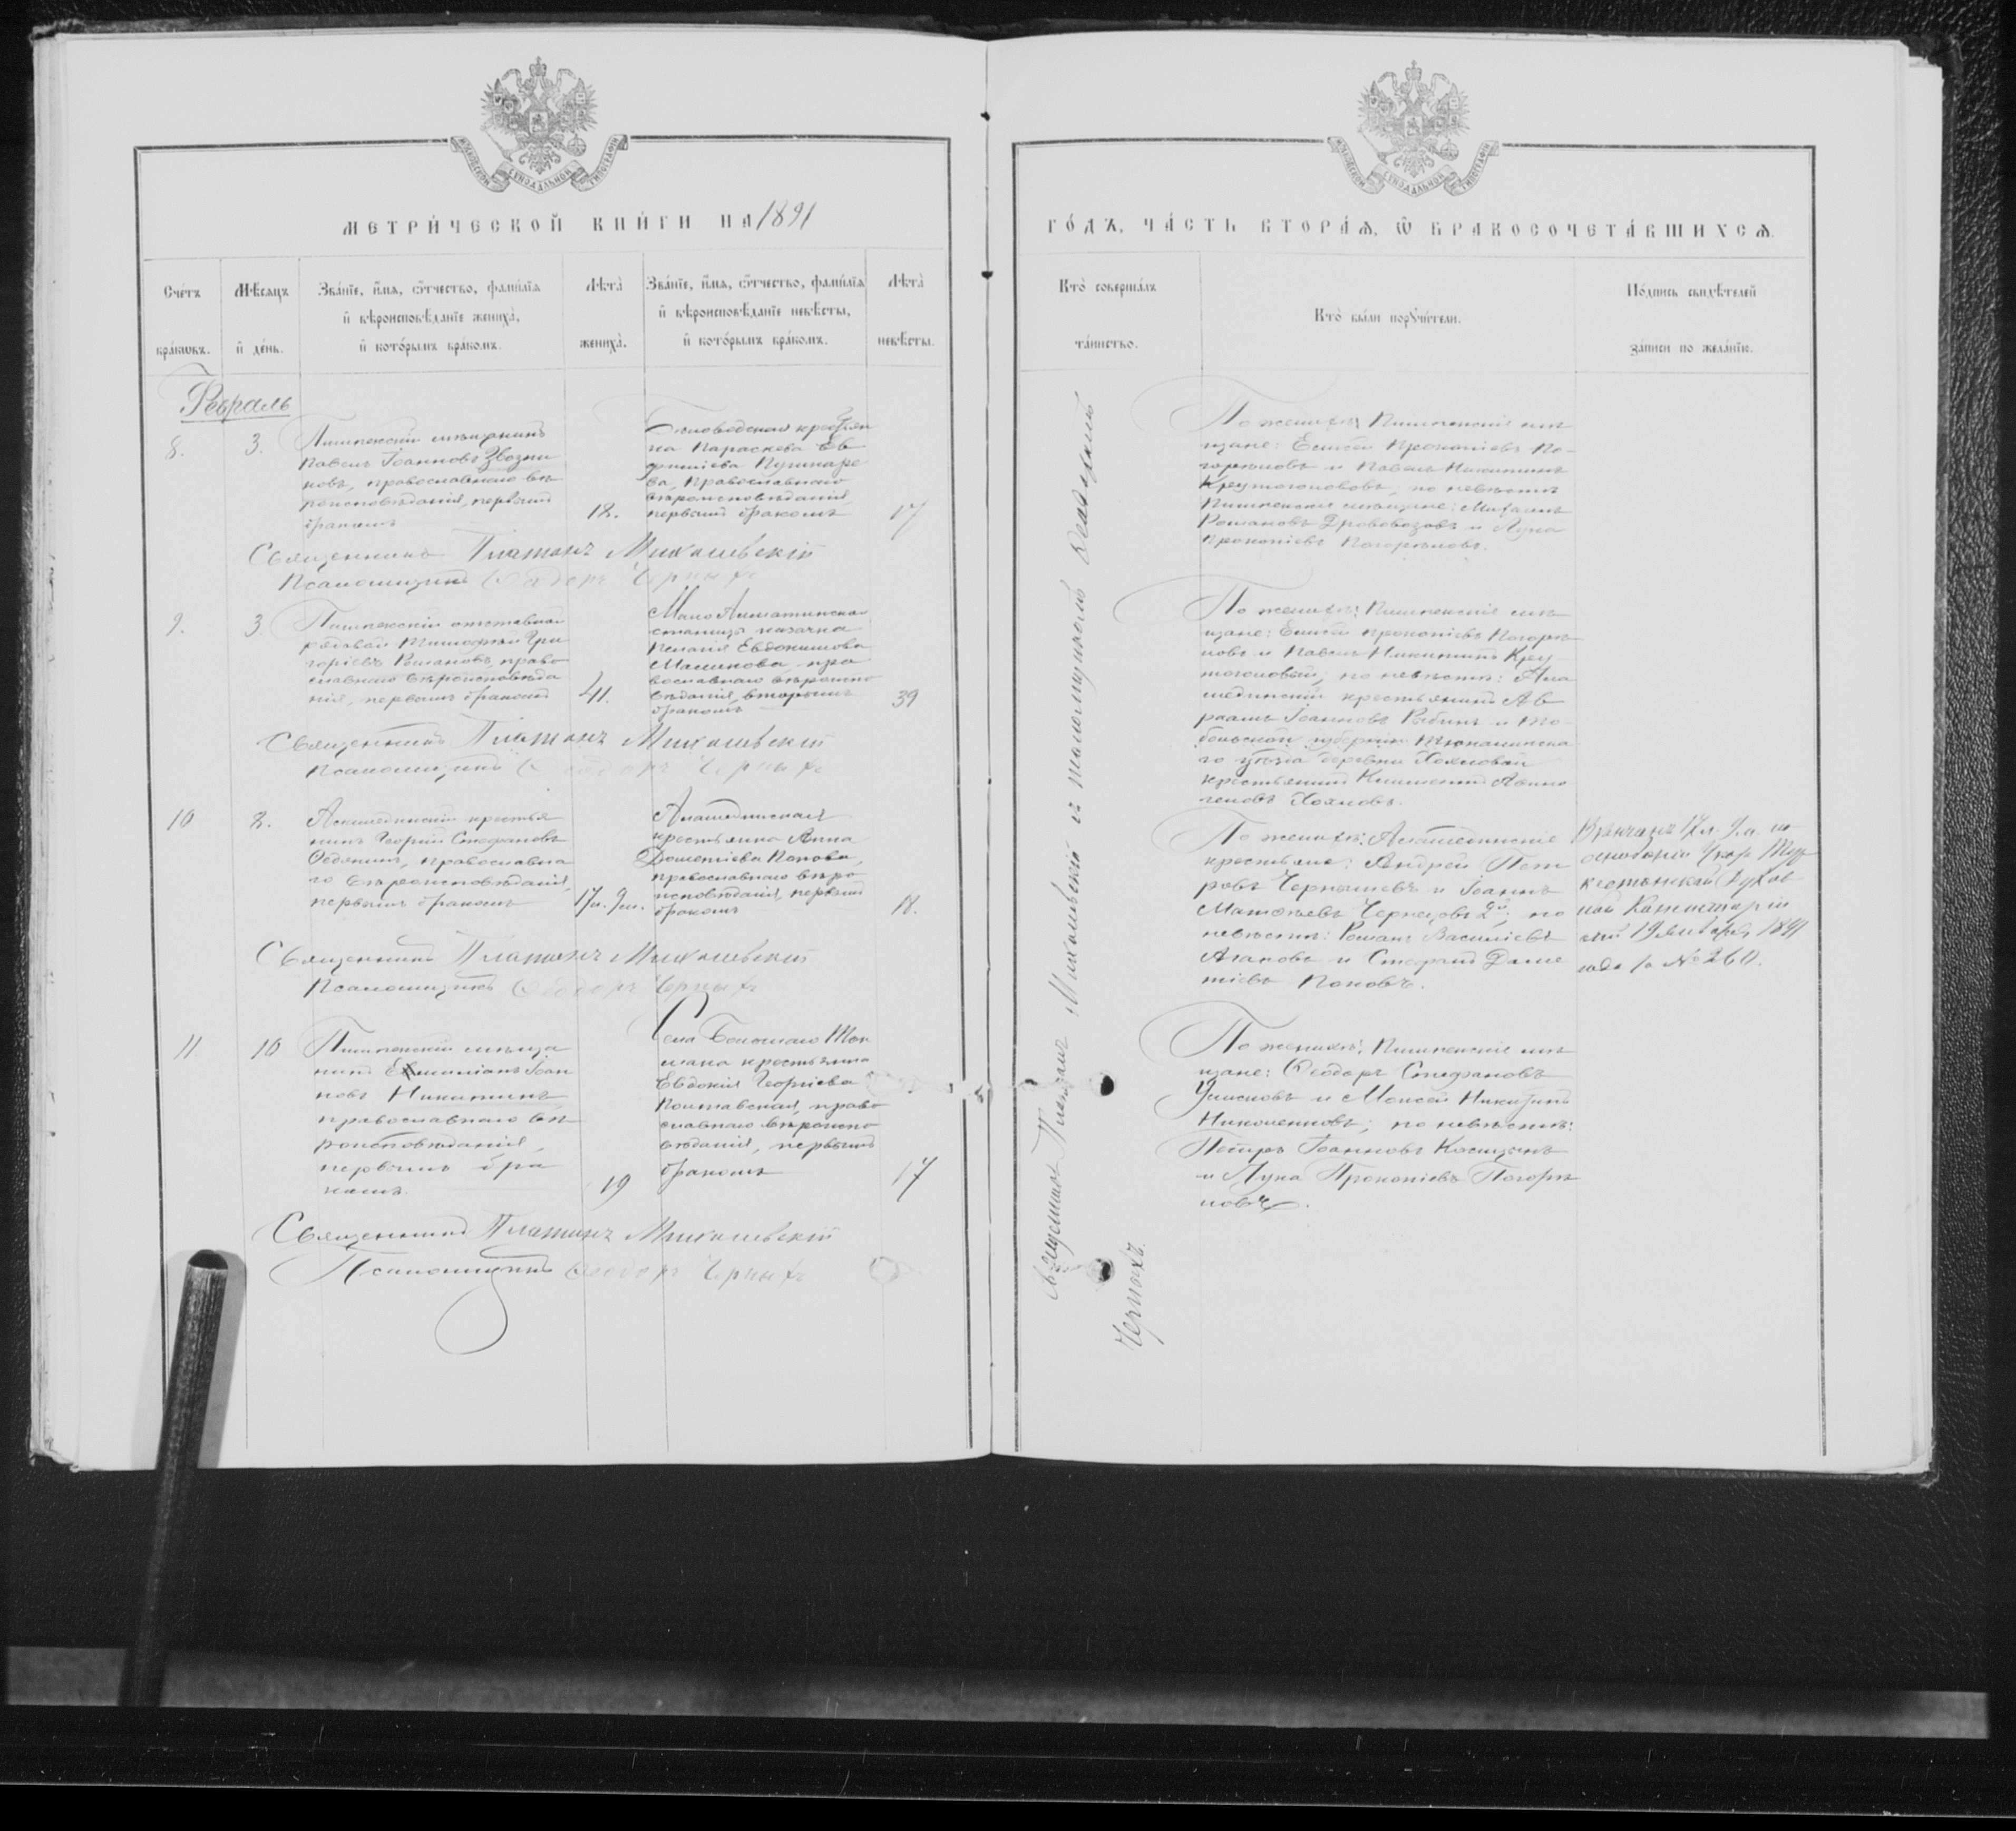 МОСКОВСКОЙ СѴНОДАЛЬНОЙ ТИПОГРАФІИ
МЕТРИ́ЧЕСКОЙ КНИ́ГИ НА 1891
Сче́тъ бра́ковъ.
Мѣ́сяцъ и҆ де́нь.
Зва́нїе, и҆́мя, ѻ҆́тчество, фами́лїя
и҆ вѣроисповѣ́данїе жениха̀,
и҆ кото́рымъ бра́комъ.
Лѣта̀ жениха̀.
Зва́нїе, и҆́мя, ѻ҆́тчество, фами́лїя
и҆ вѣроисповѣ́данїе невѣ́сты,
и҆ кото́рымъ бра́комъ.
Лѣта̀ невѣ́сты.
Февраль
8.
3.
Пишпекскій мѣщанинъ
Павелъ Іоанновъ Звозни
ковъ, православнаго вѣ
роисповѣданія, первымъ
бракомъ
18.
Бѣловодская крестьян
ка Параскева Ев
фиміева Пушкаре
ва, православнаго
вѣроисповѣданія,
первымъ бракомъ
17
Священникъ Платонъ Михалевскій
Псаломщикъ Ѳеодоръ Черныхъ
9.
3.
Пишпекскій отставной
рядовой Тимофей Гри
горіевъ Романовъ, право
славнаго вѣроисповѣда
нія, первымъ бракомъ
41.
Мало Алматинской
станицы казачка
Пелагія Евдокимова
Малинова, пра
вославнаго вѣроиспо
вѣданія, вторымъ
бракомъ
39
Священникъ Платонъ Михалевскій
Псаломщикъ Ѳеодоръ Черныхъ
10
8.
крестья
нинъ Георгій Стефановъ
православна
го вѣроисповѣданія,
первымъ бракомъ
17л. 9м.
Аламединская
крестьянка Анна
Дометіева Попова,
православнаго вѣро
исповѣданія, первымъ
бракомъ
18.
Священникъ Платонъ Михалевскій
Псаломщикъ Ѳеодоръ Черныхъ
11
10
Пишпекскій мѣща
нинъ Іоан
новъ Никитинъ
православнаго вѣ
роисповѣданія,
первымъ бра
комъ.
19
Села Большаго Ток
мака крестьянка
Евдокія Георгіева
Полтавская, право
славнаго вѣроиспо
вѣданія, первымъ
бракомъ
17
Священникъ Платонъ Михалевскій
Псаломщикъ Ѳеодоръ Черныхъ
МОСКОВСКОЙ СѴНОДАЛЬНОЙ ТИПОГРАФІИ
ГО́ДЪ, ЧА́СТЬ ВТОРА́Ѧ, Ѽ БРАКОСОЧЕТА́ВШИХСѦ.
Кто̀ соверша́лъ
та́инство.
Кто̀ бы́ли порꙋчи́тели.
По́дпись свидѣ́телей
за́писи по жела́нїю.
Священникъ Платонъ Михалевскій съ псаломщикомъ Ѳеодоромъ
Черныхъ.
По женихѣ: Пишпекскіе мѣ
щане: Елисей Прокопіевъ По-
горѣловъ и Павелъ Никитинъ
по невѣстѣ
Пишпекскіе мѣщане: Михаилъ
Романовъ Дрововозовъ и Лука
Прокопіевъ Погорѣловъ.
По женихѣ: Пишпекскіе мѣ
щане: Елисей Прокопіевъ Погорѣ
ловъ и Павелъ Никитинъ
по невѣстѣ: Ала
мединскій крестьянинъ Ав
раамъ Іоанновъ Рыбинъ и То-
больской губерніи
го уѣзда деревни
крестьянинъ
По женихѣ: Аламединскіе
крестьяне: Андрей Пет
ровъ Чернышевъ и Іоаннъ
Матѳеевъ 2й; по
невѣстѣ: Романъ Василіевъ
Агаповъ и Стефанъ Доме
тіевъ Поповъ.
Вѣнчанъ 17л. 9м. на
основаніи Указа Тур
кестанской Духов
ной Консисторіи
отъ 19 Января 1891
года за № 260.
По женихѣ: Пишпекскіе мѣ
щане: Ѳеодоръ Стефановъ
и Моисей Никитинъ
по невѣстѣ:
Петръ Іоанновъ
и Лука Прокопіевъ Погорѣ
ловъ.